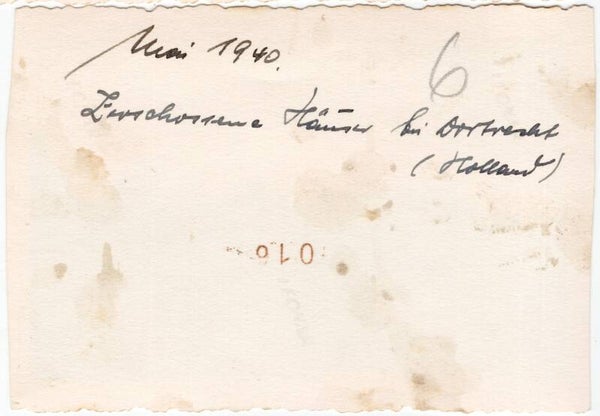 Mai 1940.
6
Zerschossene Häuser bei Dortrecht
(Holland)
910